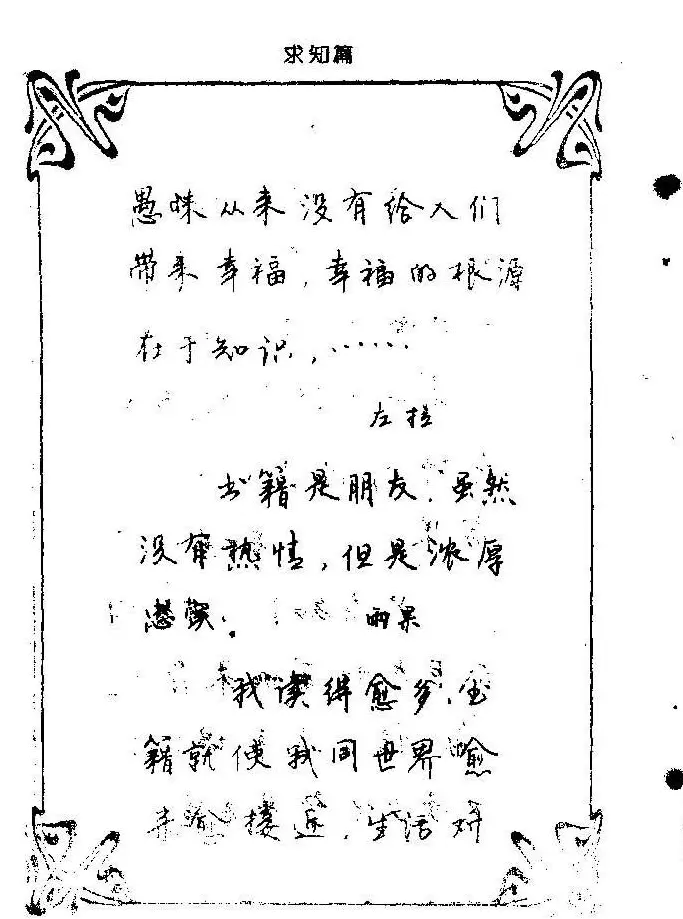 求知篇
愚昧从来没有给人们
带来幸福,幸福的根源
在于知识,……
左拉
书籍是朋友,虽然
没有热情,但是浓厚
雨果
我读得愈多,
籍就使我同世界愈
接近,生活对